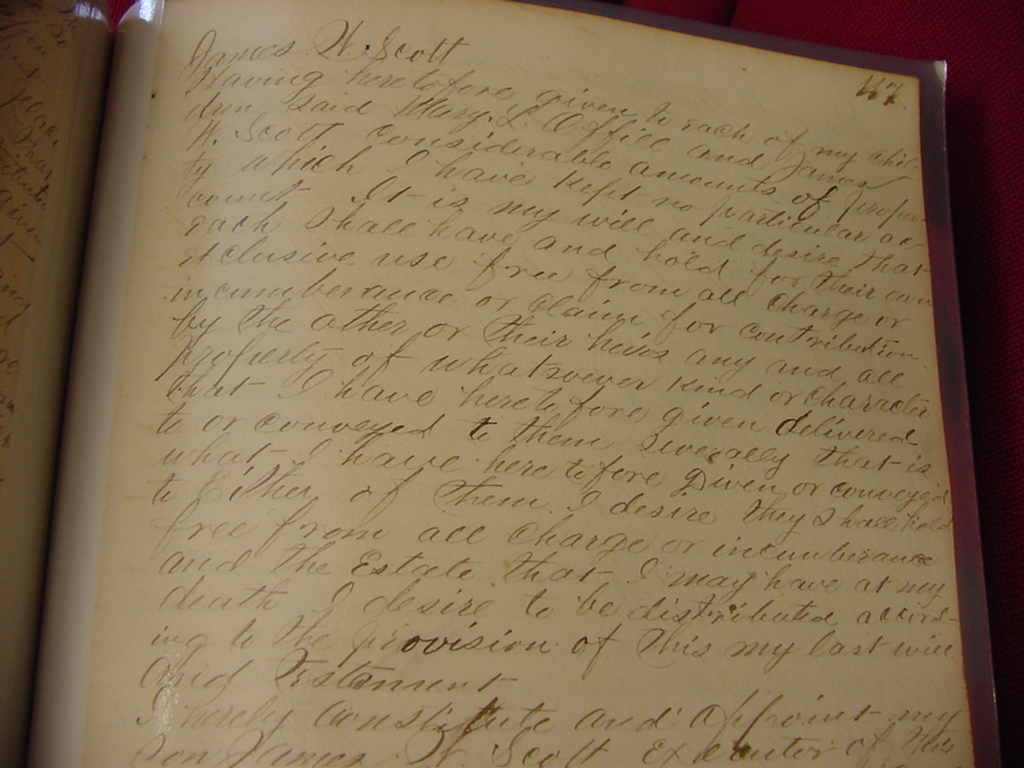 James W. Scott
Having heretofore given to each of my chil-
dren said Mary L. Office and James
W. Scott considerable amounts of proper-
ty which I have kept no particular ac-
count. It is my will and desire that
each shall have and hold for their own
exclusive use free from all charge or
incumbrance or claim for contribution
by the other or their heirs any and all
property of whatsoever kind or character
that I have heretofore given delivered
to or conveyed to them severally that is
what I have heretofore given or conveyed
to Either of them I desire they shall hold
free from all charge or incumbrance
and the Estate that I may have at my
death I desire to be distributed accord-
ing to the provision of this my last will
and Testament
I hereby constitute and appoint my
son James W. Scott Executor of this